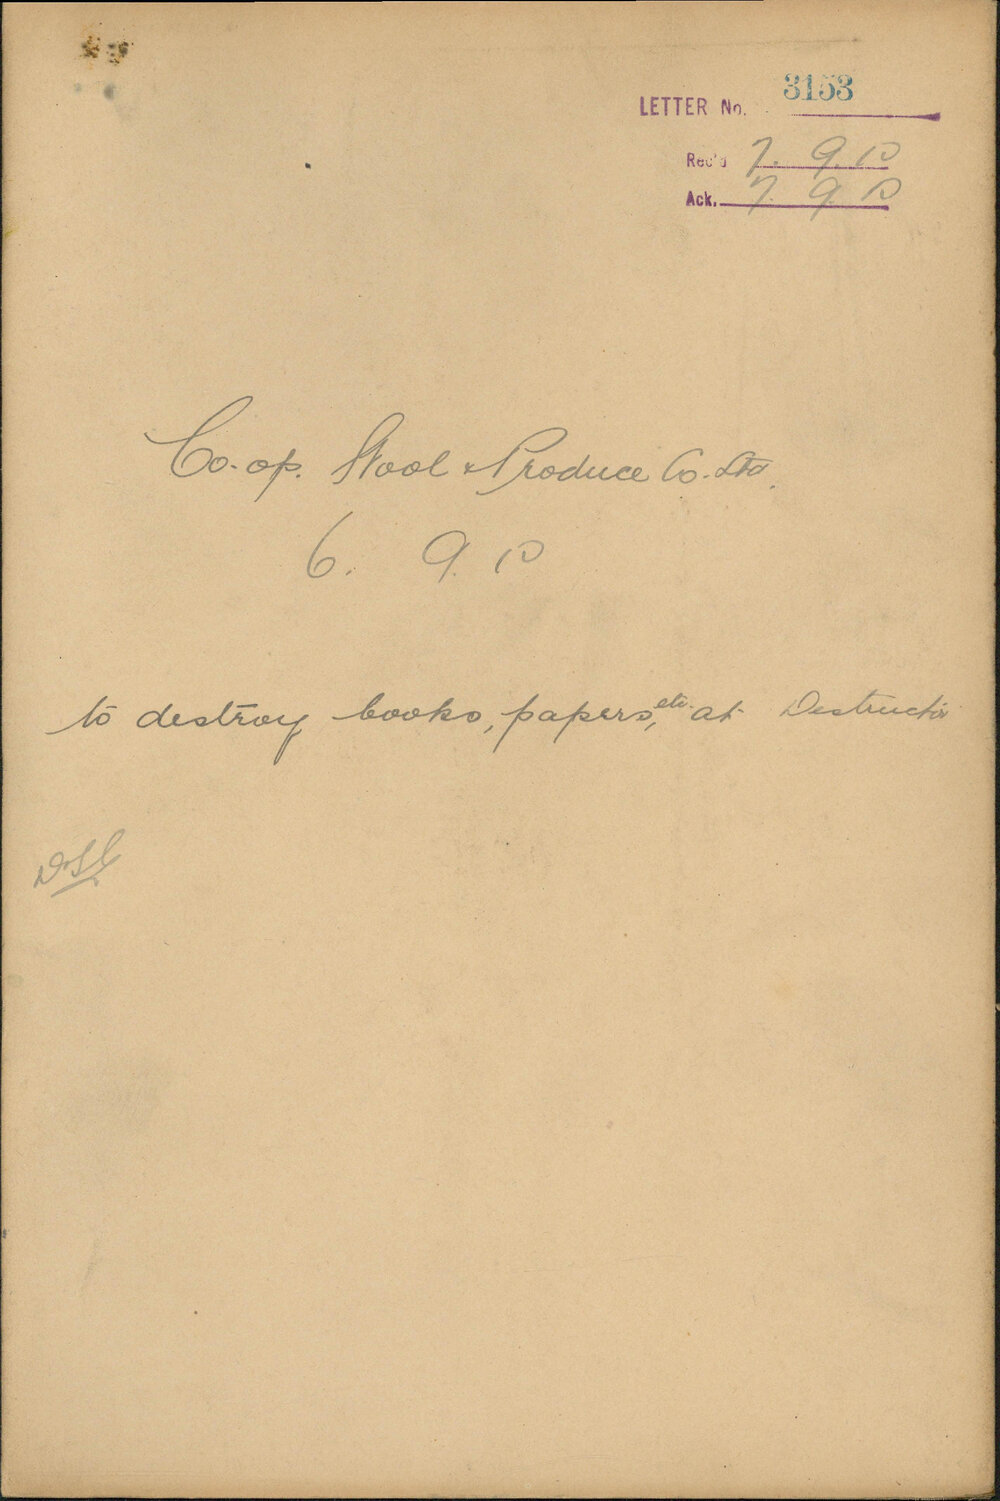 LETTER No. 3153
Rec'd 7. 9. 10
Ack. 7. 9. 10
Co-op. Wool & Produce Co. Ltd.
6. 9. 10
to destroy books, papers, etc. at Destructor